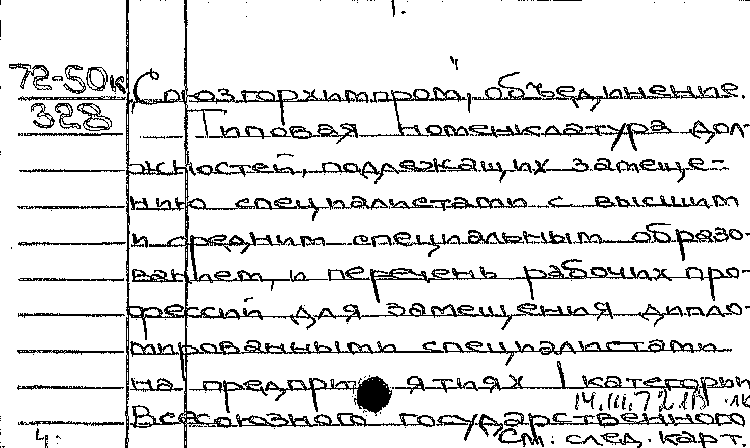 72-50к
328
„Союзгорхимпром", объединение.
Типовая номенклатура дол-
жностей, подлежащих замеще-
нию специалистами с высшим
и средним специальным образо-
ванием, и перечень рабочих про-
фессий для замещения дипло-
мированными специалистами
на предприятиях I категории
Всесоюзного государственного
См. след. карт.